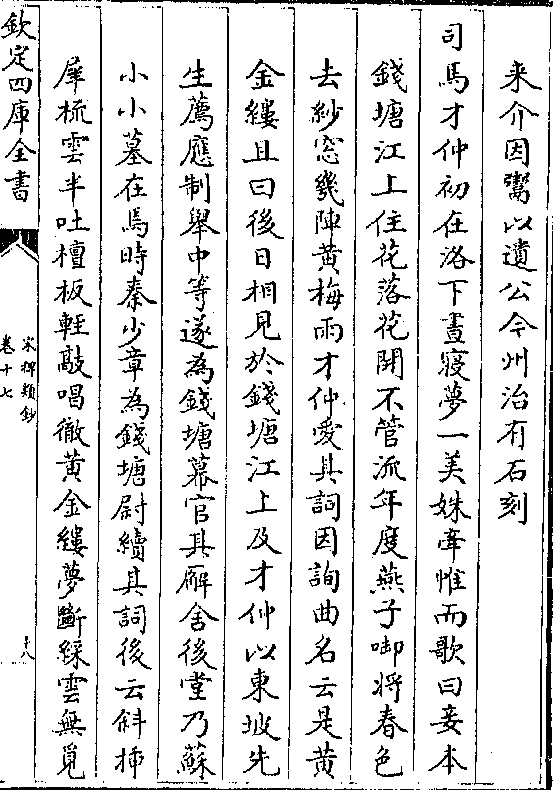 来介因鬻以遺公今州治有石刻
司馬才仲初在洛下晝寢夢一美姝牽帷而歌曰妾本
錢塘江上住花落花開不管流年度燕子啣將春色
去紗窓幾陣黄梅雨才仲愛其詞因詢曲名云是黄
金縷且曰後日相見於錢塘江上及才仲以東坡先
生薦應制舉中等遂為錢塘幕官其廨舍後堂乃蘇
小小墓在焉時秦少章為錢塘尉續其詞後云斜揷
犀梳雲半吐檀板輕敲唱徹黄金縷夢斷綵雲無覓
欽定四庫全書
宋稗類鈔
卷十七
十八